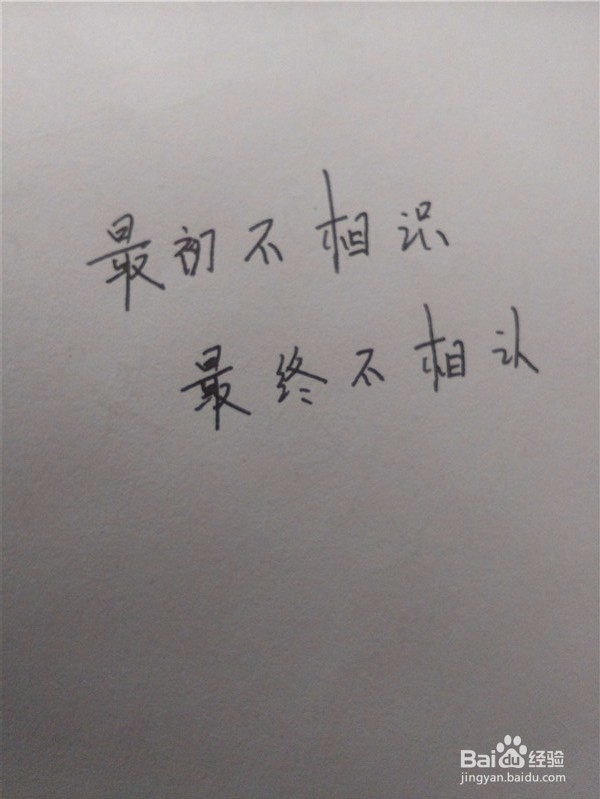 最初不相识
最终不相认
Baidu经验
jingyan.baidu.com